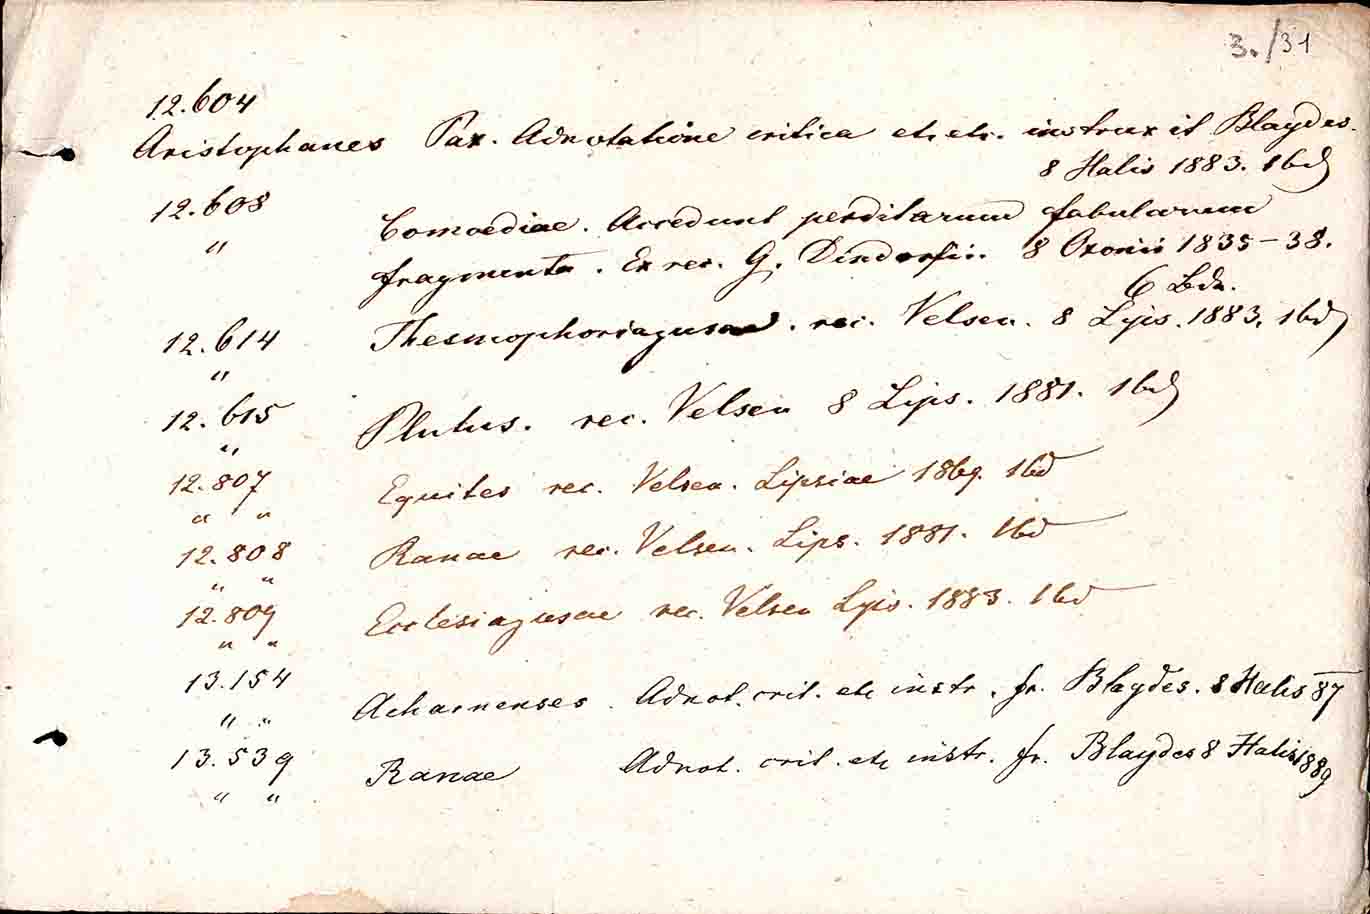 3./31
12.604
Aristophanes Pax. Adnotatione critica etc etc. instruxit Blaydes.
8 Halis 1883. 1bd
12.608
" Comoediae. Accedunt perditarum fabularum
fragmenta. Ex rec. G. Dindorfii. 8 Oxonii 1835-38.
6 Bde.
12.614 Thesmophoriazusae. rec. Velsen. 8 Lips. 1883. 1bd
"
12.615 Plutus. rec. Velsen 8 Lips. 1881. 1bd
"
12.807 Equites rec. Velsen. Lipsiae 1869. 1bd
" "
12.808 Ranae rec. Velsen. Lips. 1881. 1bd
" "
12.809 Ecclesiazusae rec. Velsen Lips. 1883. 1bd
" "
13.154 Acharnenses. Adnot. crit. etc instr. Fr. Blaydes. 8 Halis 87
" "
13.539 Ranae Adnot. crit. etc instr. Fr. Blaydes 8 Halis 1889
" "